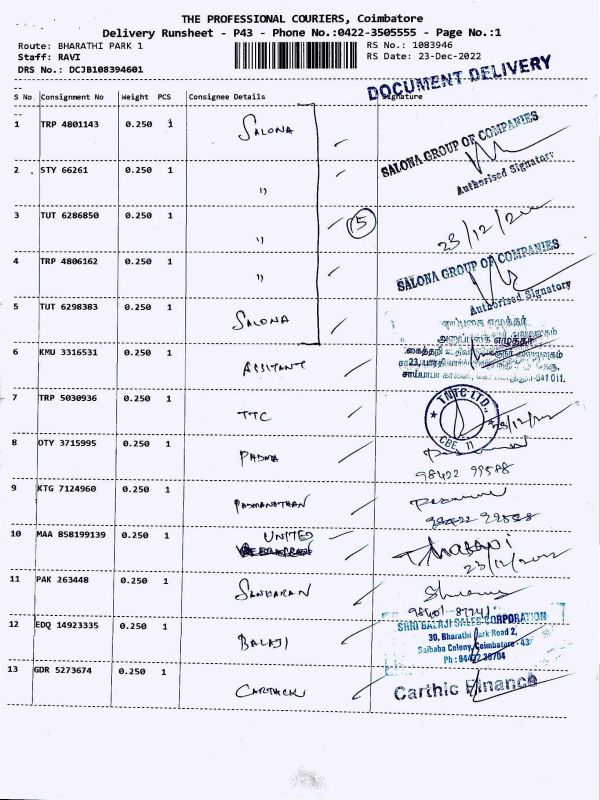 THE PROFESSIONAL COURIERS, Coimbatore
Delivery Runsheet - P43 - Phone No.:0422-3505555 - Page No.:1
Route: BHARATHI PARK 1 RS No.: 1083946
Staff: RAVI RS Date: 23-Dec-2022
DRS No.: DCJB108394601
DOCUMENT DELIVERY
S No. Consignment No Weight PCS Consignee Details Signature
1 TRP 4801143 0.250 1 SALONA
SALONA GROUP OF COMPANIES
Authorised Signatory
2 STY 66261 0.250 1 "
3 TUT 6286850 0.250 1 " 5
23/12/2022
4 TRP 4806162 0.250 1 "
SALONA GROUP OF COMPANIES
Authorised Signatory
5 TUT 6298383 0.250 1 SALONA
எழுத்தர்
6 KMU 3316531 0.250 1
சாய்பாபா காலனி, 641 011.
7 TRP 5030936 0.250 1 TTC
TNTC LTD., CBE 11
8 OTY 3715995 0.250 1 PADMA
98422 99588
9 KTG 7124960 0.250 1
10 MAA 858199139 0.250 1 UNITED
23/12/2022
11 PAK 263448 0.250 1 SANKARAN
98401 87741
12 EDQ 14923335 0.250 1 BALAJI
SHRI BALAJI SALES CORPORATION
30, Bharathi Park Road 2,
Saibaba Colony, Coimbatore - 43
13 GDR 5273674 0.250 1 CARTHICK
Carthic Finance